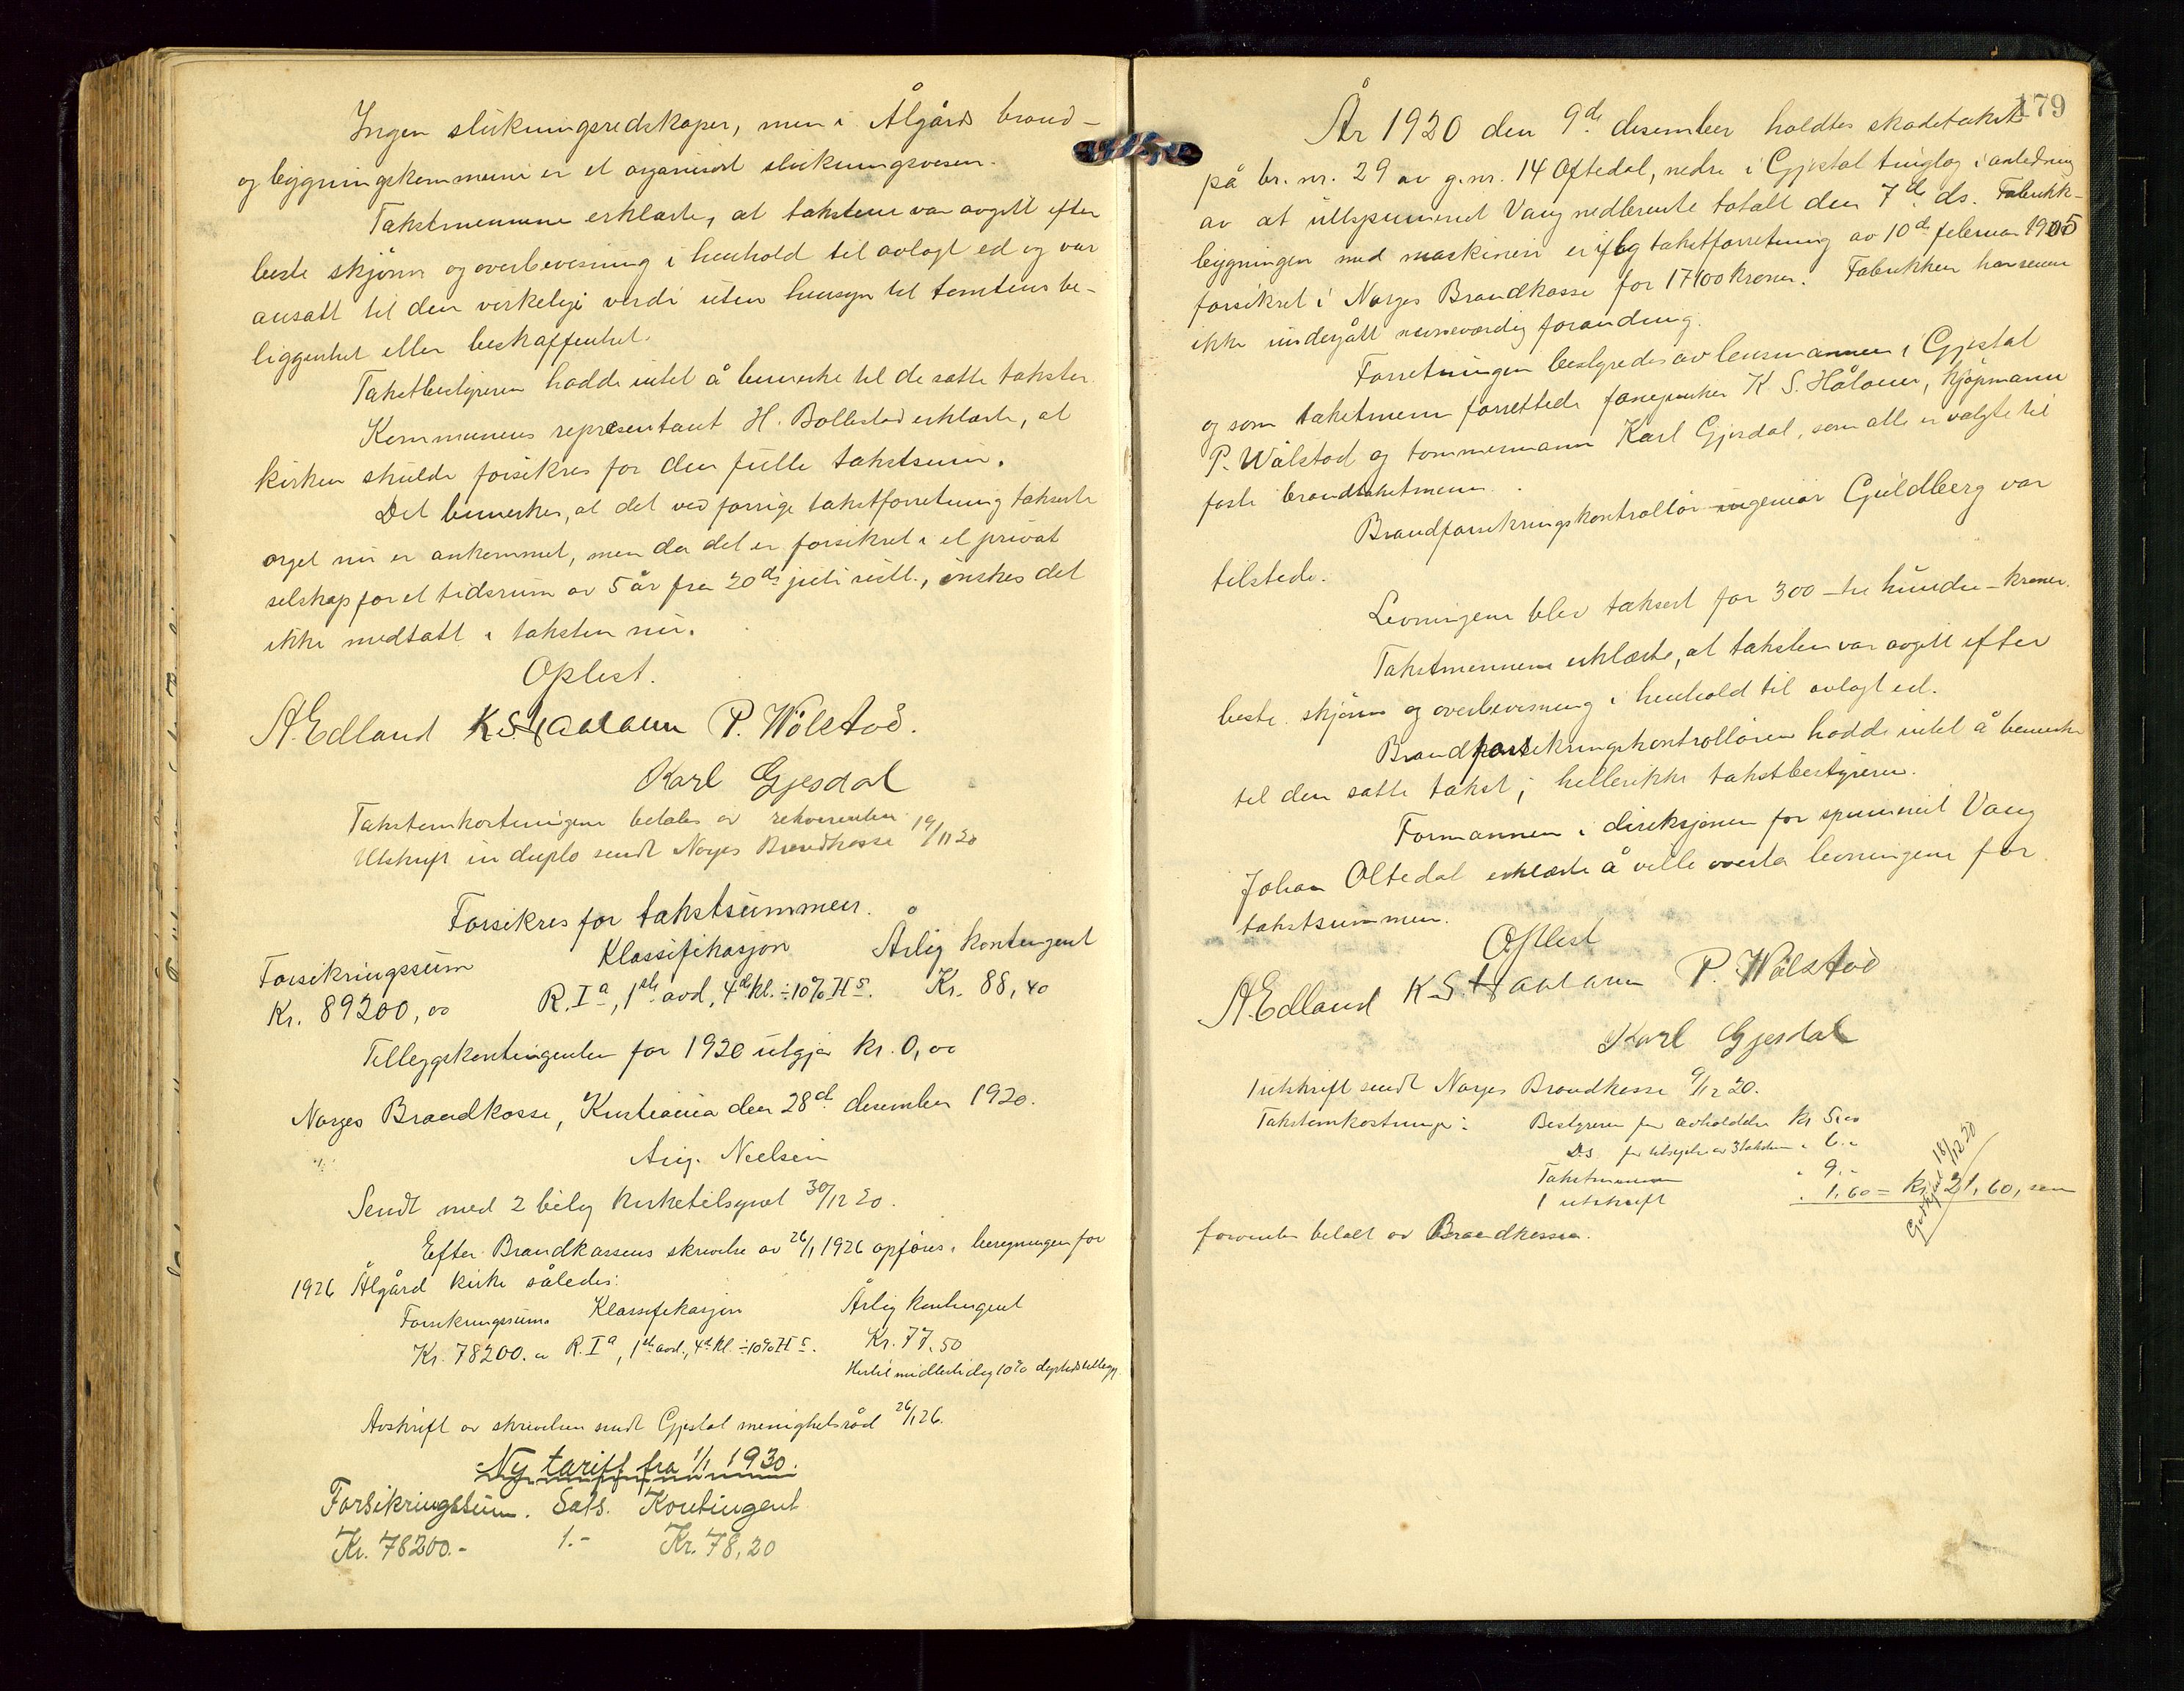 Ingen slukningsredskaper, men i Ålgård brand-
og bygningskommune er et organisert slukningsvesen.
Takstmennene erklærte, at taksten var avgitt efter
beste skjønn og overbevisning i henhold til avlagt ed og var
ansatt til den virkelige verdi uten hensyn til tomtens be-
liggenhet eller beskaffenhet.
Takstbestyreren hadde intet å bemerke til de satte takster.
Kommunens representant H. Bollestad erklærte, at
kirken skulde forsikres for den fulle takstsum.
Det bemerkes, at det ved forrige takstforretning takserte
orgel nu er ankommet, men da det er forsikret i et privat
selskap for et tidsrum av 5 år fra 20de juli sistl., ønskes det
ikke medtatt i taksten nu.
Oplest.
A. Edland K. S. Haaland P. Wölstad.
Karl Gjesdal
Takstomkostningene betales av rekvirenten
Utskrift in duplo sendt Norges Brandkasse 19/11 20
Forsikres for takstsummen.
Forsikringssum Klassifikasjon Årlig kontingent
Kr. 89200,00 R. Iª, 1ste avd, 4de kl. ÷ 10% H S. Kr. 88,40
Tilleggskontingenten for 1920 utgjør kr. 0,00
Norges Brandkasse, Kristiania den 28de desember 1920.
Aug. Nielsen
Sendt med 2 bilag kirketilsynet 30/12 20.
Efter Brandkassens skrivelse av 26/1 1926 opføres i beregningen for
1926 Ålgård kirke således:
Forsikringssum Klassifikasjon Årlig kontingent
Kr. 78200.00 R. Iª, 1ste avd., 4de kl. ÷ 10% H S. Kr. 77,50
Hertil midlertidig 10% dyrtidstillegg.
Avskrift av skrivelsen sendt Gjestal menighetsråd 26/1 26.
Ny tariff fra 1/1 1930.
Forsikringssum. Sats. Kontingent
Kr. 78200.- 1.- Kr. 78,20
179
År 1920 den 9de desember holdtes skadetakst
på br. nr. 29 av g.nr. 14 Oftedal, nedre i Gjestal tinglag i anledning
av at ullspinneriet Vaug nedbrente totalt den 7de ds. Fabrikk-
bygningen med maskineri er iflg takstforretning av 10de februar 1905
forsikret i Norges Brandkasse for 17100 kroner. Fabrikken har senere
ikke undergått nevneverdig forandring.
Forretningen bestyredes av lensmannen i Gjestal
og som takstmenn forrettede K. S. Håland, kjøpmann
P. Wølstad og tømmermann Karl Gjesdal, som alle er valgte til
faste brandtakstmenn.
Brandforsikringskontrollør ingeniør Guldberg var
tilstede.
Levningene blev taksert for 300 – tre hundre – kroner.
Takstmennene erklærte, at taksten var avgitt efter
beste skjønn og overbevisning i henhold til avlagt ed.
Brandforsikringskontrolløren hadde intet å bemerke
til den satte takst; heller ikke takstbestyreren.
Formannen i direksjonen for spinneriet Vaug
Johan Oltedal erklærte å ville overta levningene for
takstsummen.
Oplest
A. Edland K. S. Haaland P. Wölstad
Karl Gjesdal
1 utskrift sendt Norges Brandkasse 9/12 20.
Takstomkostninger: Bestyreren for avholdelse kr 5,00
Ds. for utsigelse av 3 takstm. " 6.-
Takstmennene " 9.-
1 utskrift " 1,60 = kr. 21,60, som
Godkjent 18/12 20
forventes betalt av Brandkassen.